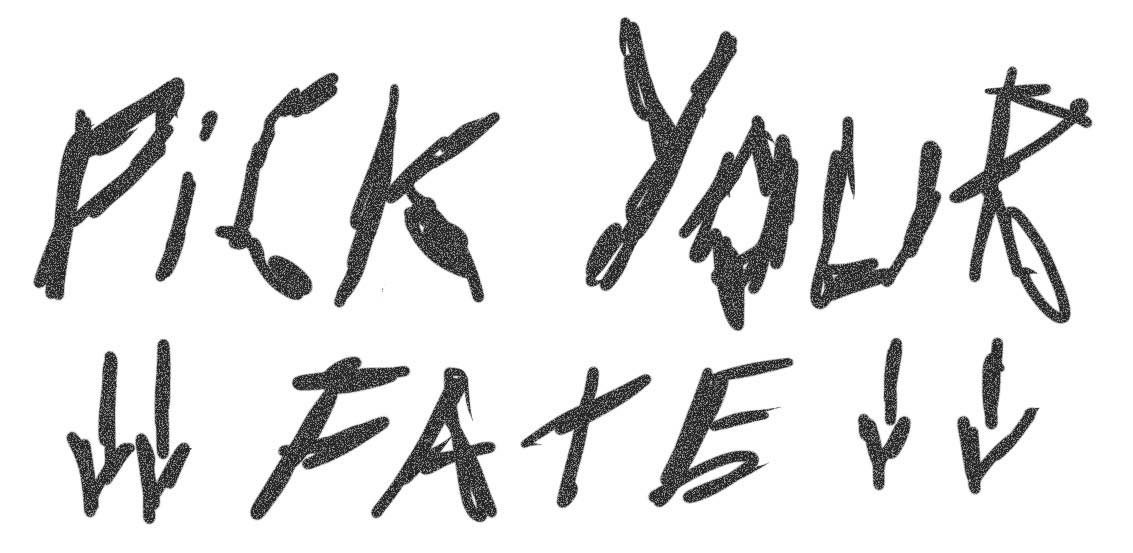 PiCK YOUR
↓↓ FATE ↓↓